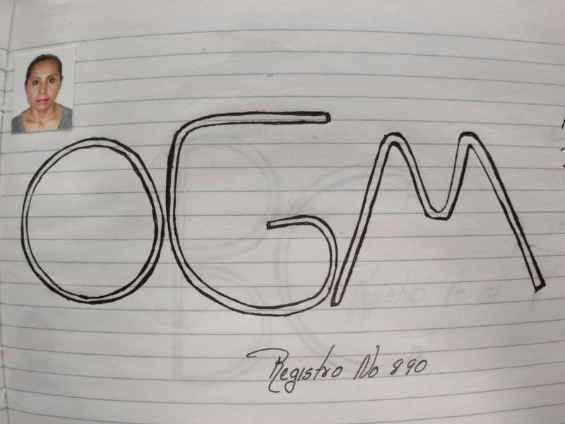 OGM
Registro No 890